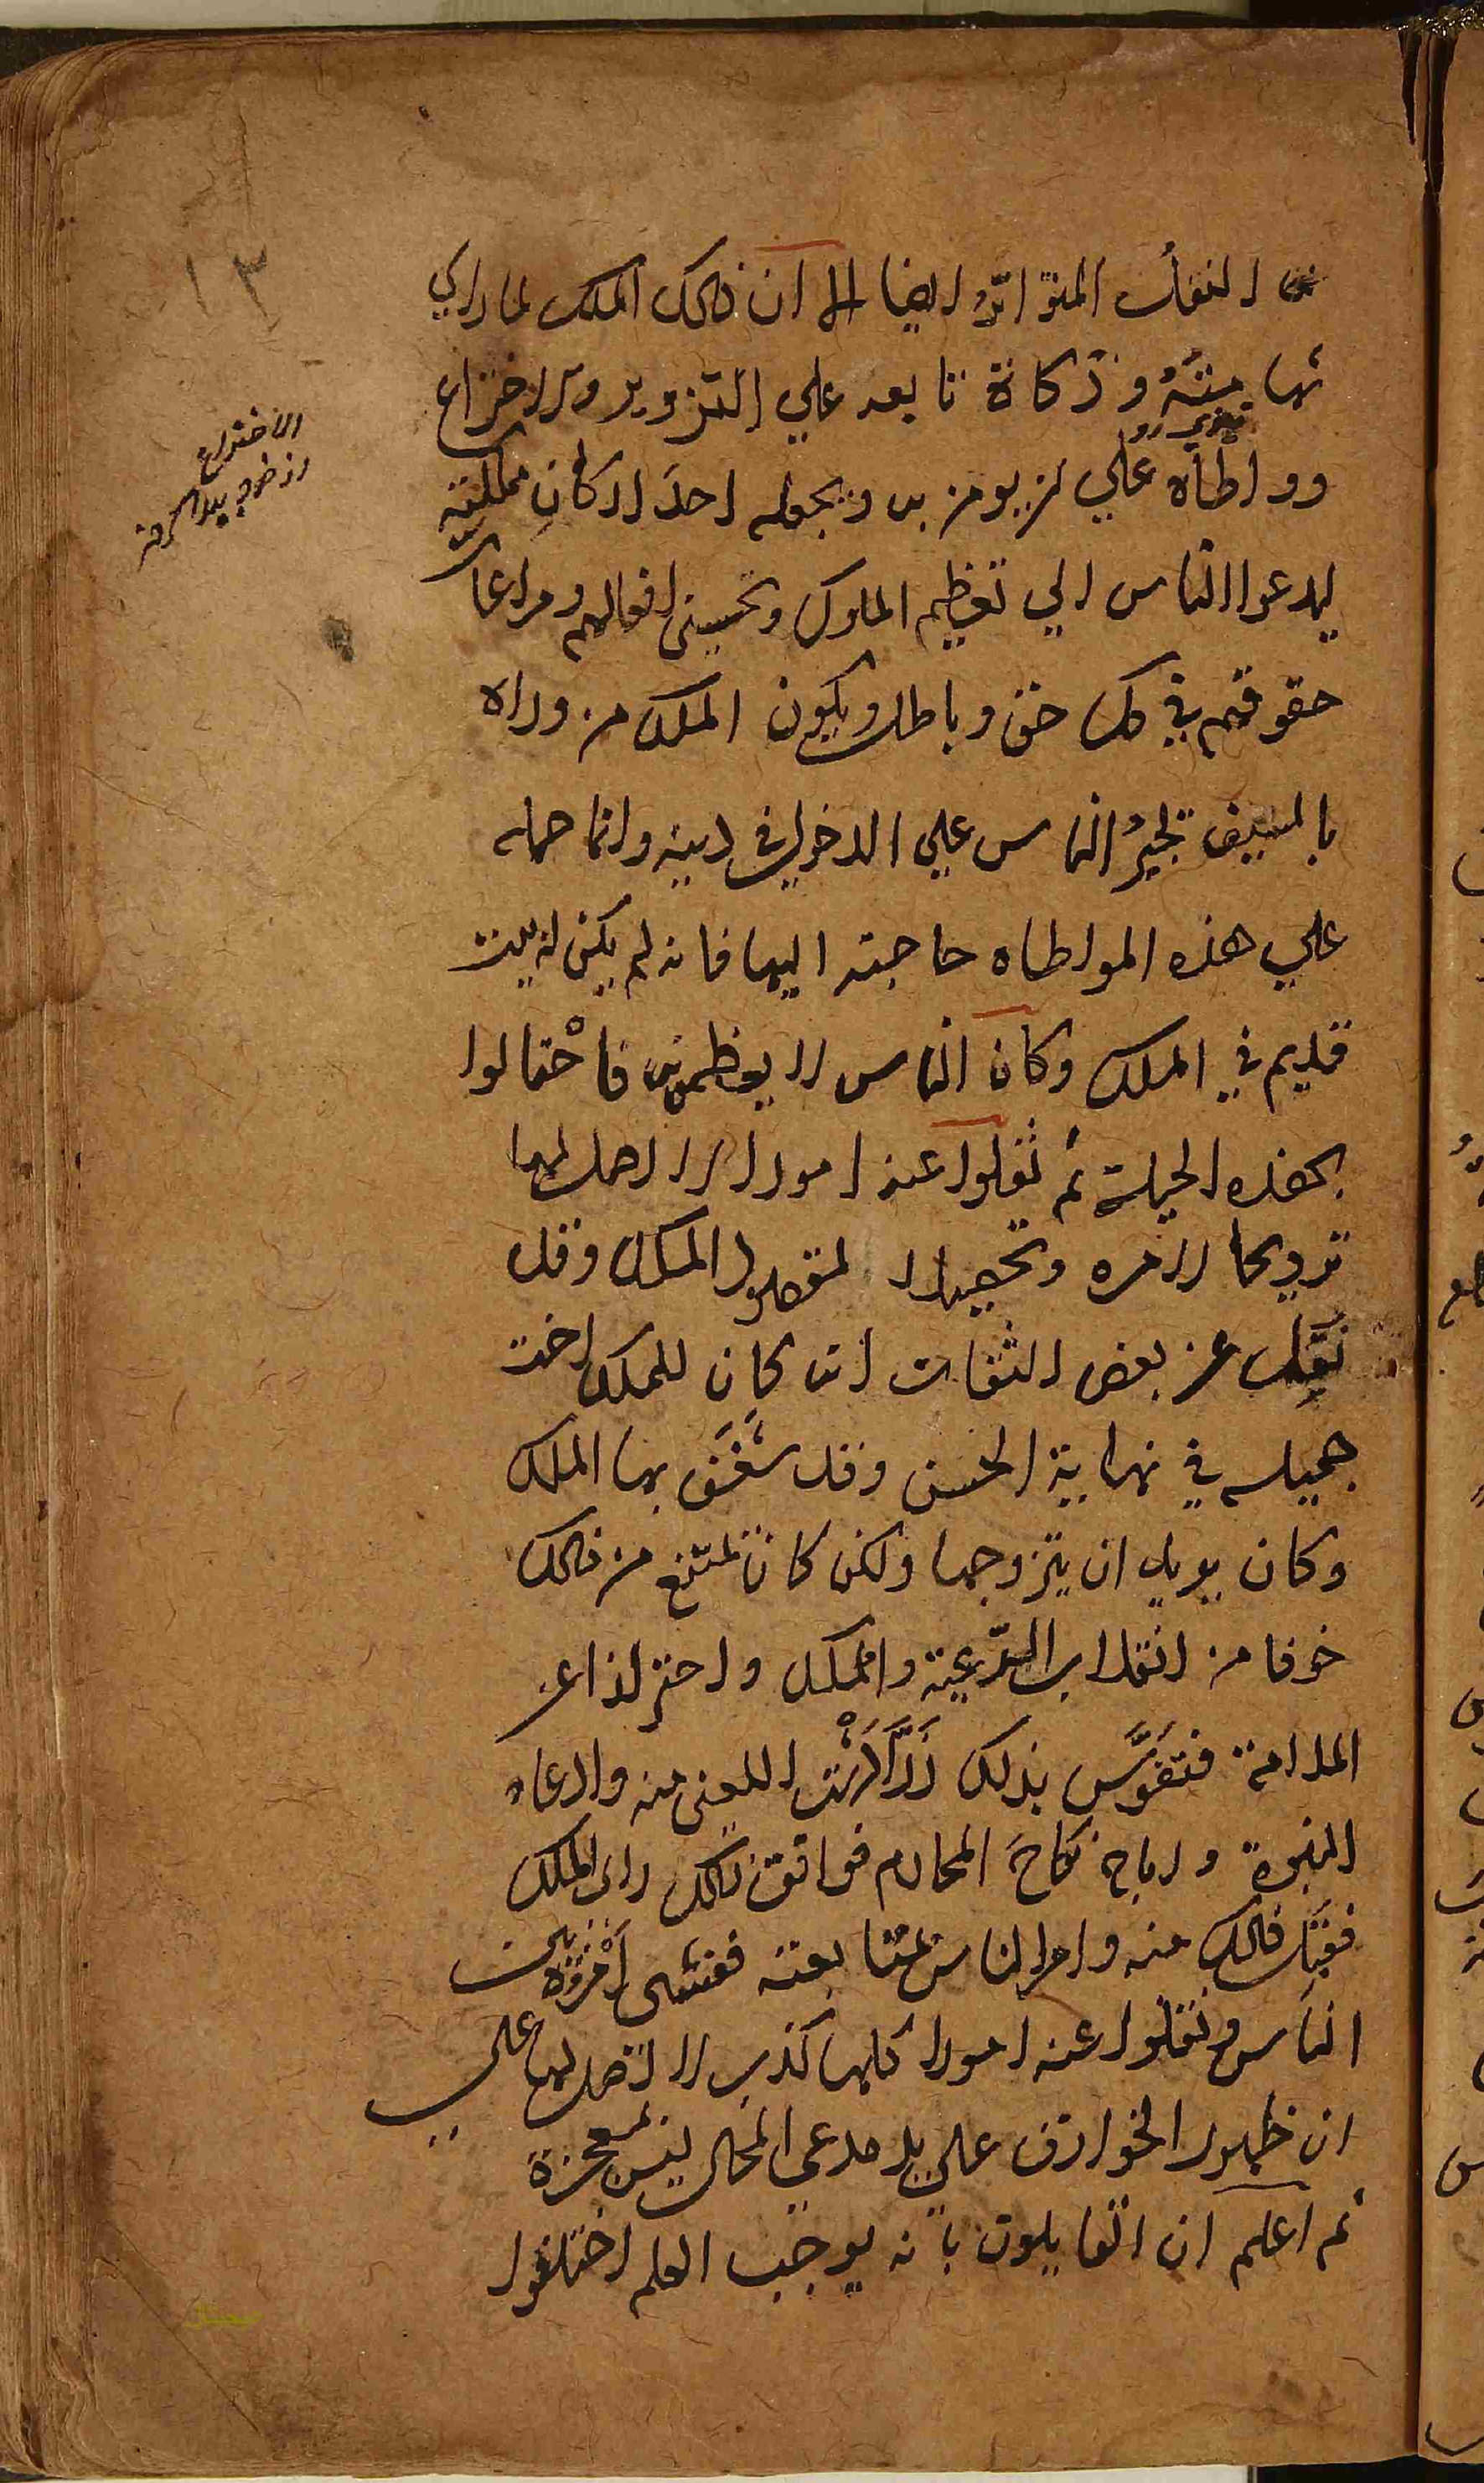 النقل المتواتر ايضا الا ان ذلك الملك لما راي
شهامته وذكاة تابعه علي التزوير والاختراع
وواطأه علي ان يومن به ويجعله احد اركان مملكته
ليدعوا الناس الي تعظيم الملوك وتحسين افعالهم ومراعات
حقوقهم في كل حق وباطل ويكون الملك من وراه
بالسيف تجبر الناس علي الدخول في دينه وانما حمله
علي هذه المواطاه حاجته اليها فانه لم يكن له بيت
قديم في الملك وكان الناس لا يعظمونه فاحْتالوا
بهذه الحيلة ثم نقلوا عنه امورا لا اصل لها
ترويجا لامره وتحصيلا لمقصود الملك وقد
نُقِل عن بعض الثقات انه كان للملك اخت
جميله في نهاية الحسن وقد شَغَف بها الملك
وكان يريد ان يتزوجها ولكن كان تمتنع من ذلك
خوفا من انقلاب الرّعية والملك واحترازا عن
الملامة فتفرَّس بذلك زَرَادُشْت اللعين منه وادعاء
النبوة واباح نكاحَ المحارم فوافق ذلك راي الملك
فقبِل ذلك منه وامر الناس بمتابعته ففشى اَمْره بين
الناس ونقلوا عنه امورا كلها كذب لا اصل لها علي
ان ظهور الخوارق علي يد مدعي المحال ليس بمعجزة
ثم اعلم ان القايلون بانه يوجب العلم اختلفوا
١٣
الاختراع